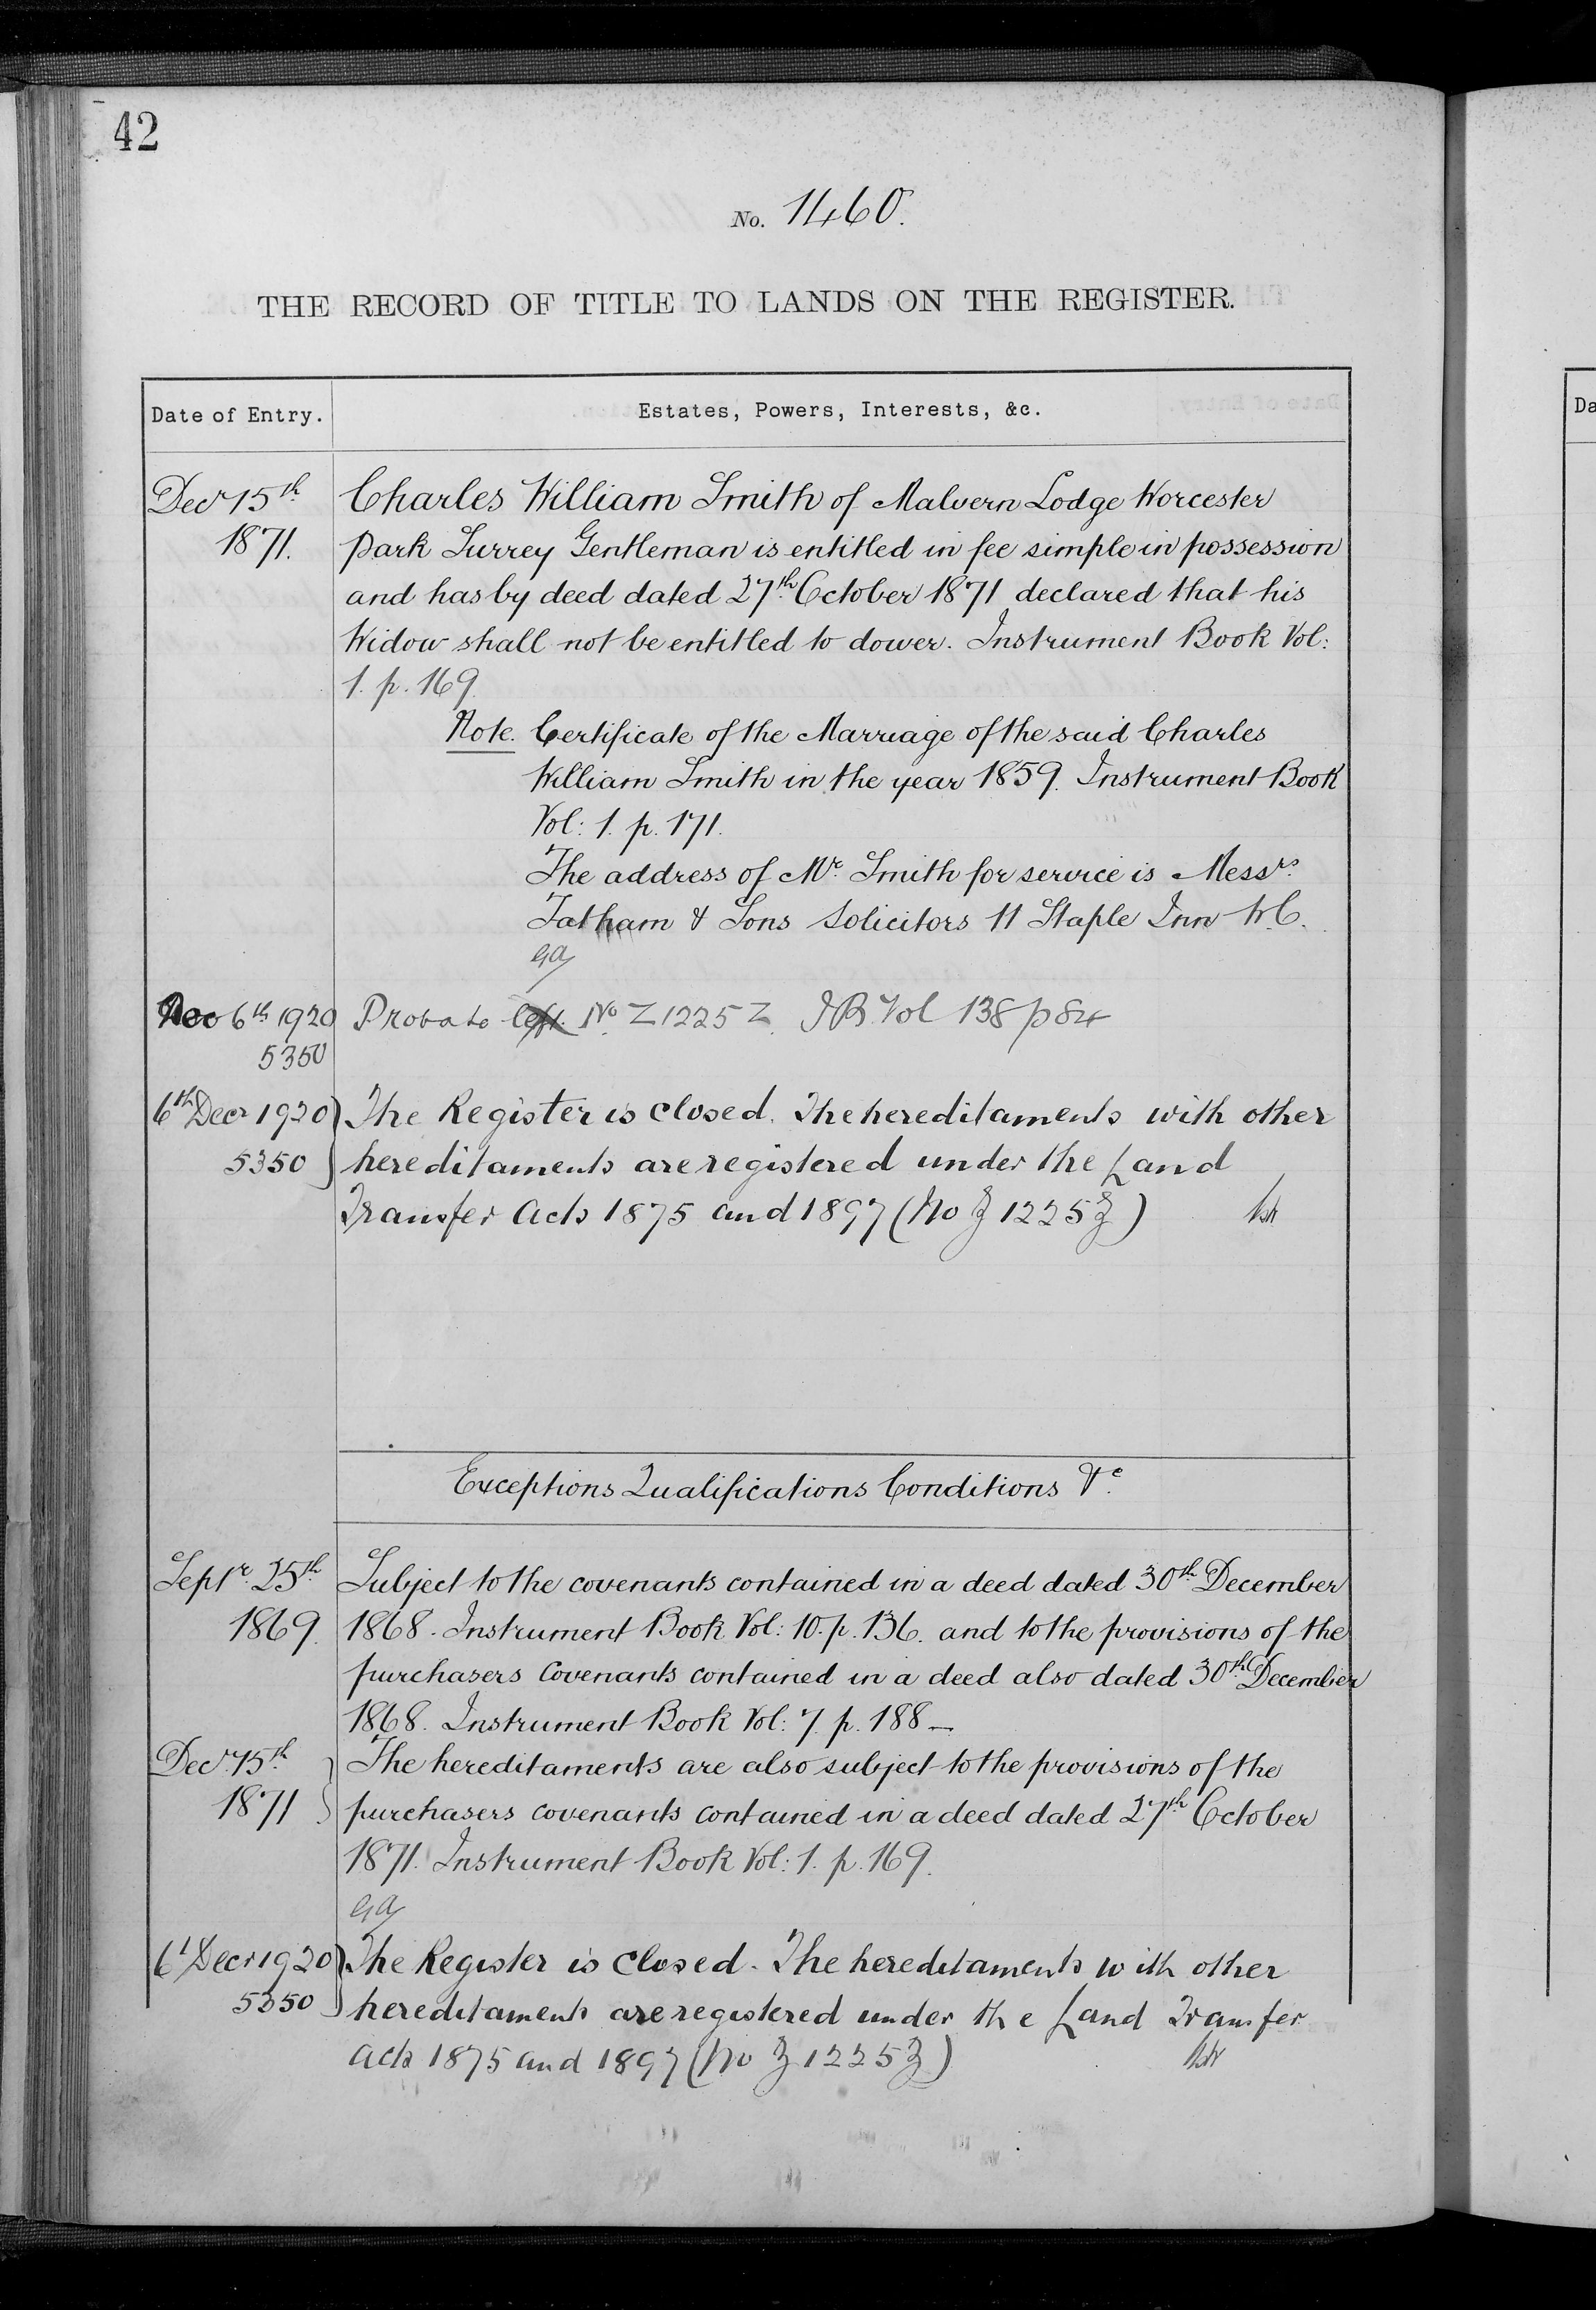 42
No. 1460.
THE RECORD OF TITLE TO LANDS ON THE REGISTER.
Date of Entry.
Estates, Powers, Interests, &c.
Decr 15th
1871.
Charles William Smith of Malvern Lodge Worcester
Park Surrey Gentleman is entitled in fee simple in possession
and has by deed dated 27th October 1871 declared that his
Widow shall not be entitled to dower. Instrument Book Vol:
1. p. 169.
Note. Certificate of the Marriage of the said Charles
William Smith in the year 1859. Instrument Book
Vol: 1. p. 171.
The address of Mr. Smith for service is Messrs.
Tatham & Sons Solicitors 11 Staple Inn W.C.
Dec 6th 1920
5350
Probate left No. Z1225Z. IB Vol 138 p 84
6th Decr 1920
5350
The Register is closed. The hereditaments with other
hereditaments are registered under the Land
Transfer Acts 1875 and 1897 (No Z 1225Z)
Exceptions Qualifications Conditions &c.
Septr. 25th
1869.
Subject to the covenants contained in a deed dated 30th December
1868. Instrument Book Vol: 10. p. 136. and to the provisions of the
purchasers Covenants contained in a deed also dated 30th December
1868. Instrument Book Vol: 7. p. 188—
Decr. 15th
1871
The hereditaments are also subject to the provisions of the
purchasers covenants contained in a deed dated 27th October
1871. Instrument Book Vol: 1. p. 169.
6th Decr 1920
5350
The Register is closed. The hereditaments with other
hereditaments are registered under the Land Transfer
Acts 1875 and 1897 (No Z 1225Z)
Da